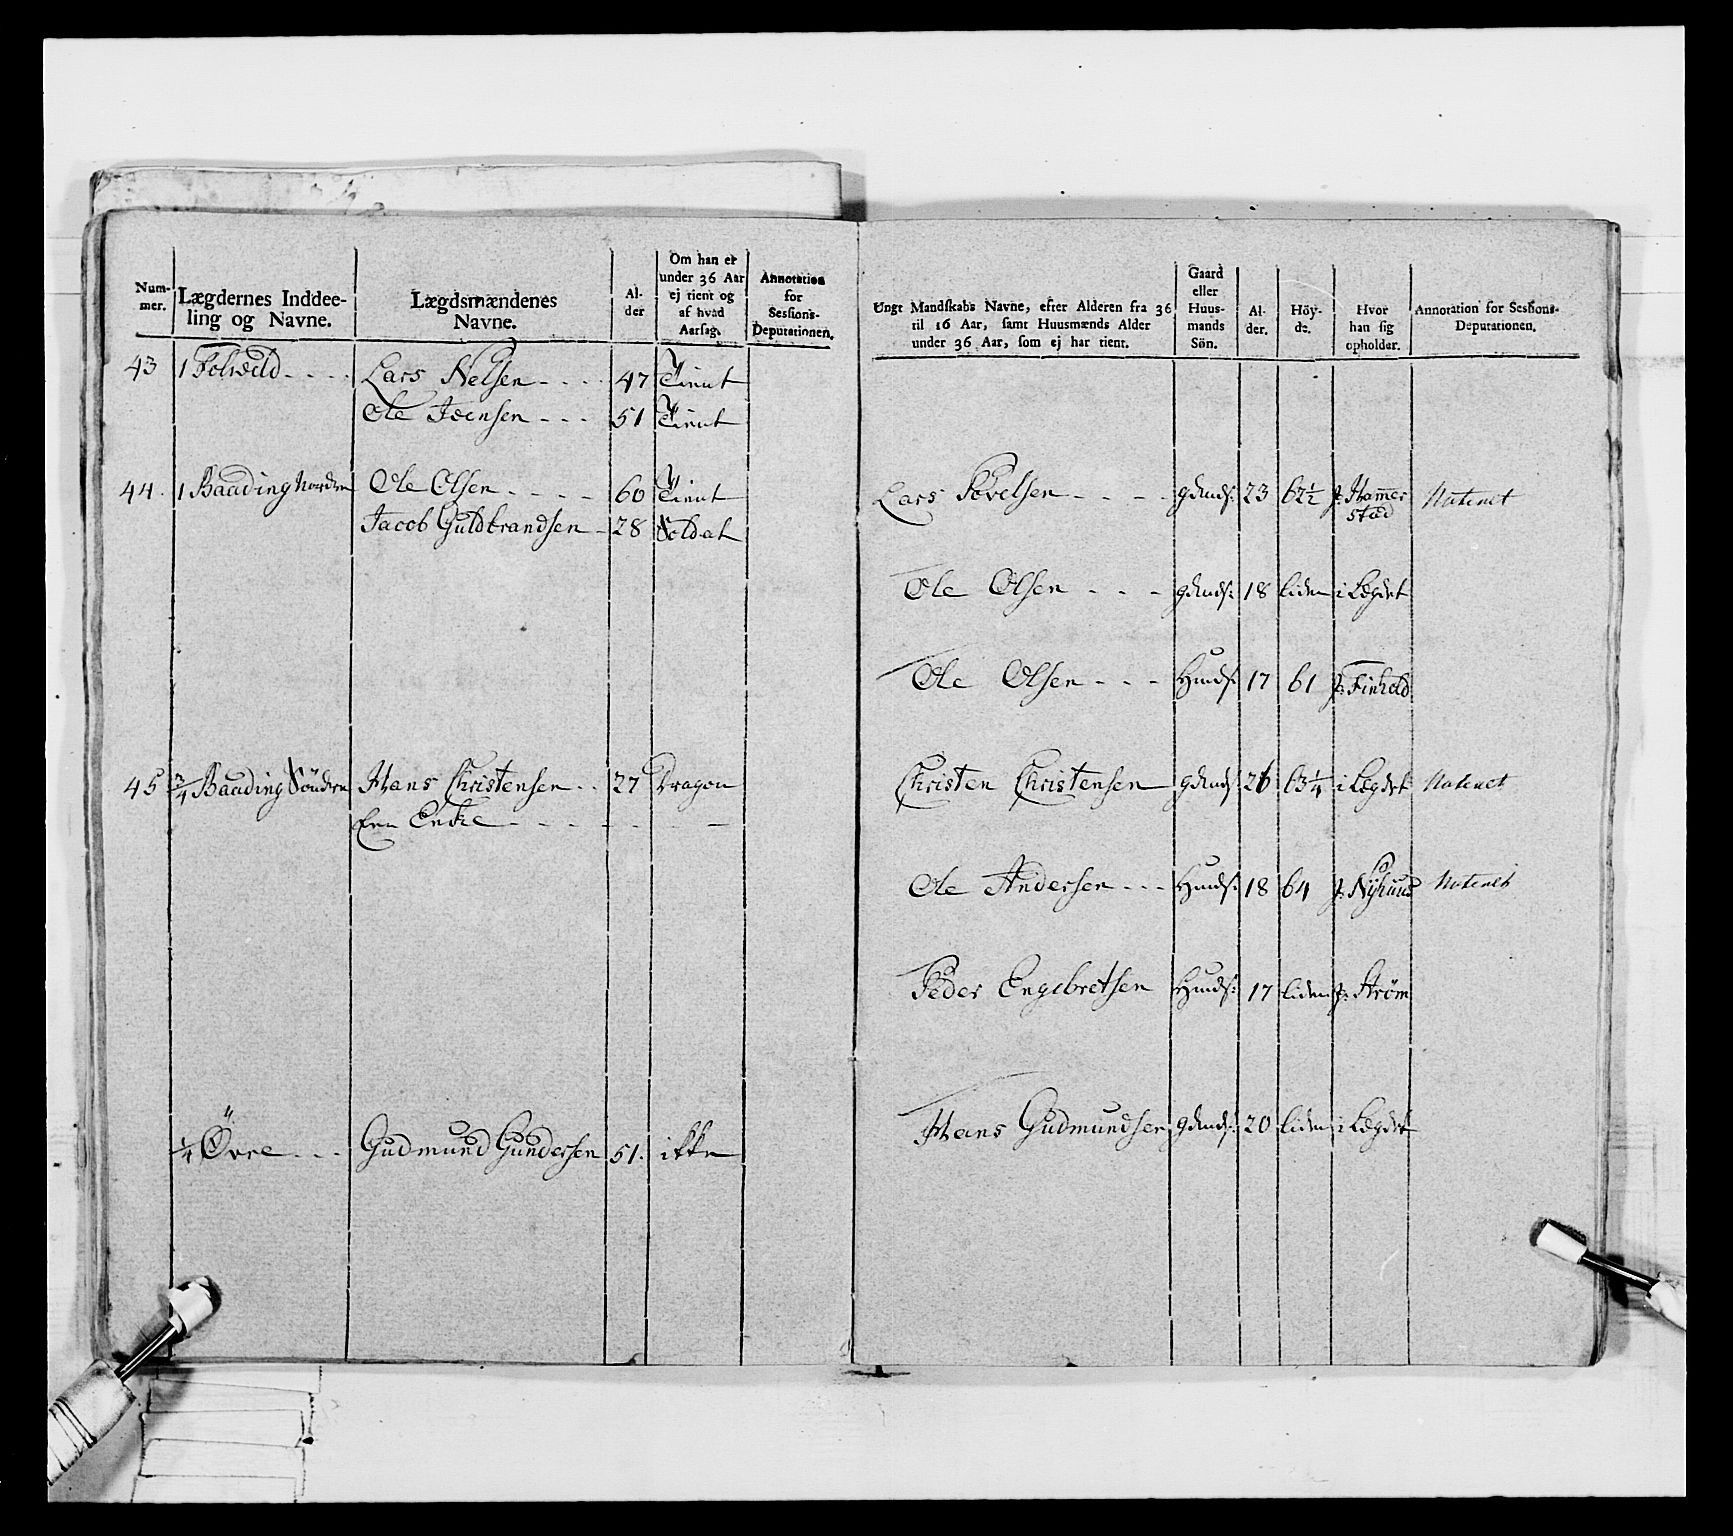 Num-
mer.
Lægdernes Inddee-
ling og Navne.
Lægdsmændenes
Navne.
Al-
der
Om han er
under 36 Aar
ej tient og
af hvad
Aarsag.
Annotation
for
Sessions-
Deputationen.
43 1 Folveld - - - - Lars Nelsen - - - - 47 Tient
Ole Joensen - - - 51 Tient
44. 1 Baading Nordre Ole Olsen - - - - 60 Tient
Jacob Guldbrandsen - 28 Soldat
45 3/4 Baading Söndre Hans Christensen - - 27 Dragon
En Enke - - - - - - -
1/4 Övre - - - Gudmund Gundersen 51. ikke
Ungt Mandskabs Navne, efter Alderen fra 36
til 16 Aar, samt Huusmænds Alder
under 36 Aar, som ej har tient.
Gaard
eller
Huus-
mands
Sön.
Al-
der.
Höy-
de.
Hvor
han sig
opholder.
Annotation for Sessions-
Deputationen.
Lars Povelsen - - - - gdmds: 23 62½ p. Hammer
stad Noteret
Ole Olsen - - - gdmds: 18 liden i Lægdet
Ole Olsen - - - Hmds: 17 61 p. Finhold
Christen Christensen gdmds: 26 63¼ i Lægdet Noteret
Ole Andersen - - - Hmds: 18 64 p. Nyhuus Noteret
Peder Engebretsen Hmds: 17 liden p. Ström
Hans Gudmundsen gdmds: 20 liden i Lægdet